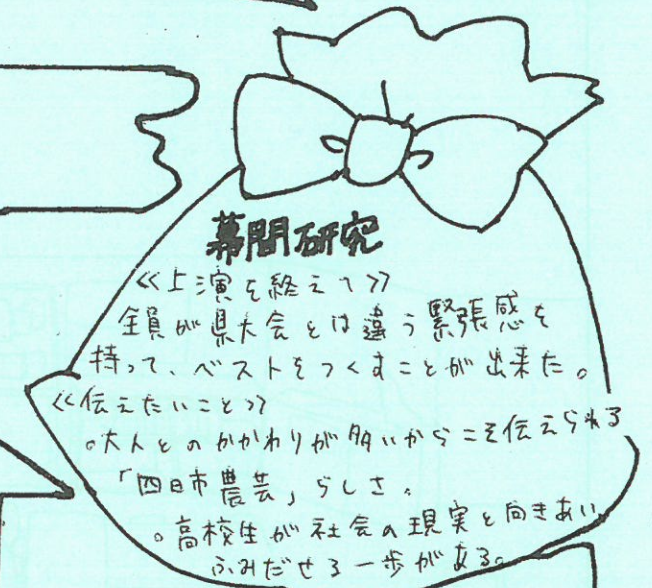 幕間研究
≪上演を終えて≫
全員が県大会とは違う緊張感を
持って、ベストをつくすことが出来た。
≪伝えたいこと≫
。大人とのかかわりが多いからこそ伝えられる
「四日市農芸」らしさ。
。高校生が社会の現実と向きあい
ふみだせる一歩がある。